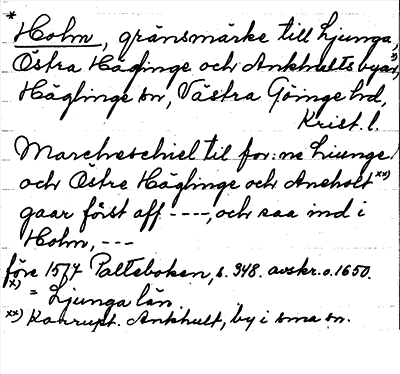 *
Holm, gränsmärke till Ljunga,
Östra Häglinge och Ankhults byar, x)
Häglinge sn, Västra Göinge hd,
Krist. l.
Marcheschiel til for:ne Liunge
och Östre Häglinge och Aneholt xx)
gaar först aff ----, och saa ind i
Holm, ---
före 1577 Palteboken, s. 348. avskr. o. 1650.
x) = Ljunga län
xx) Korrupt. Ankhult, by i sma sn.